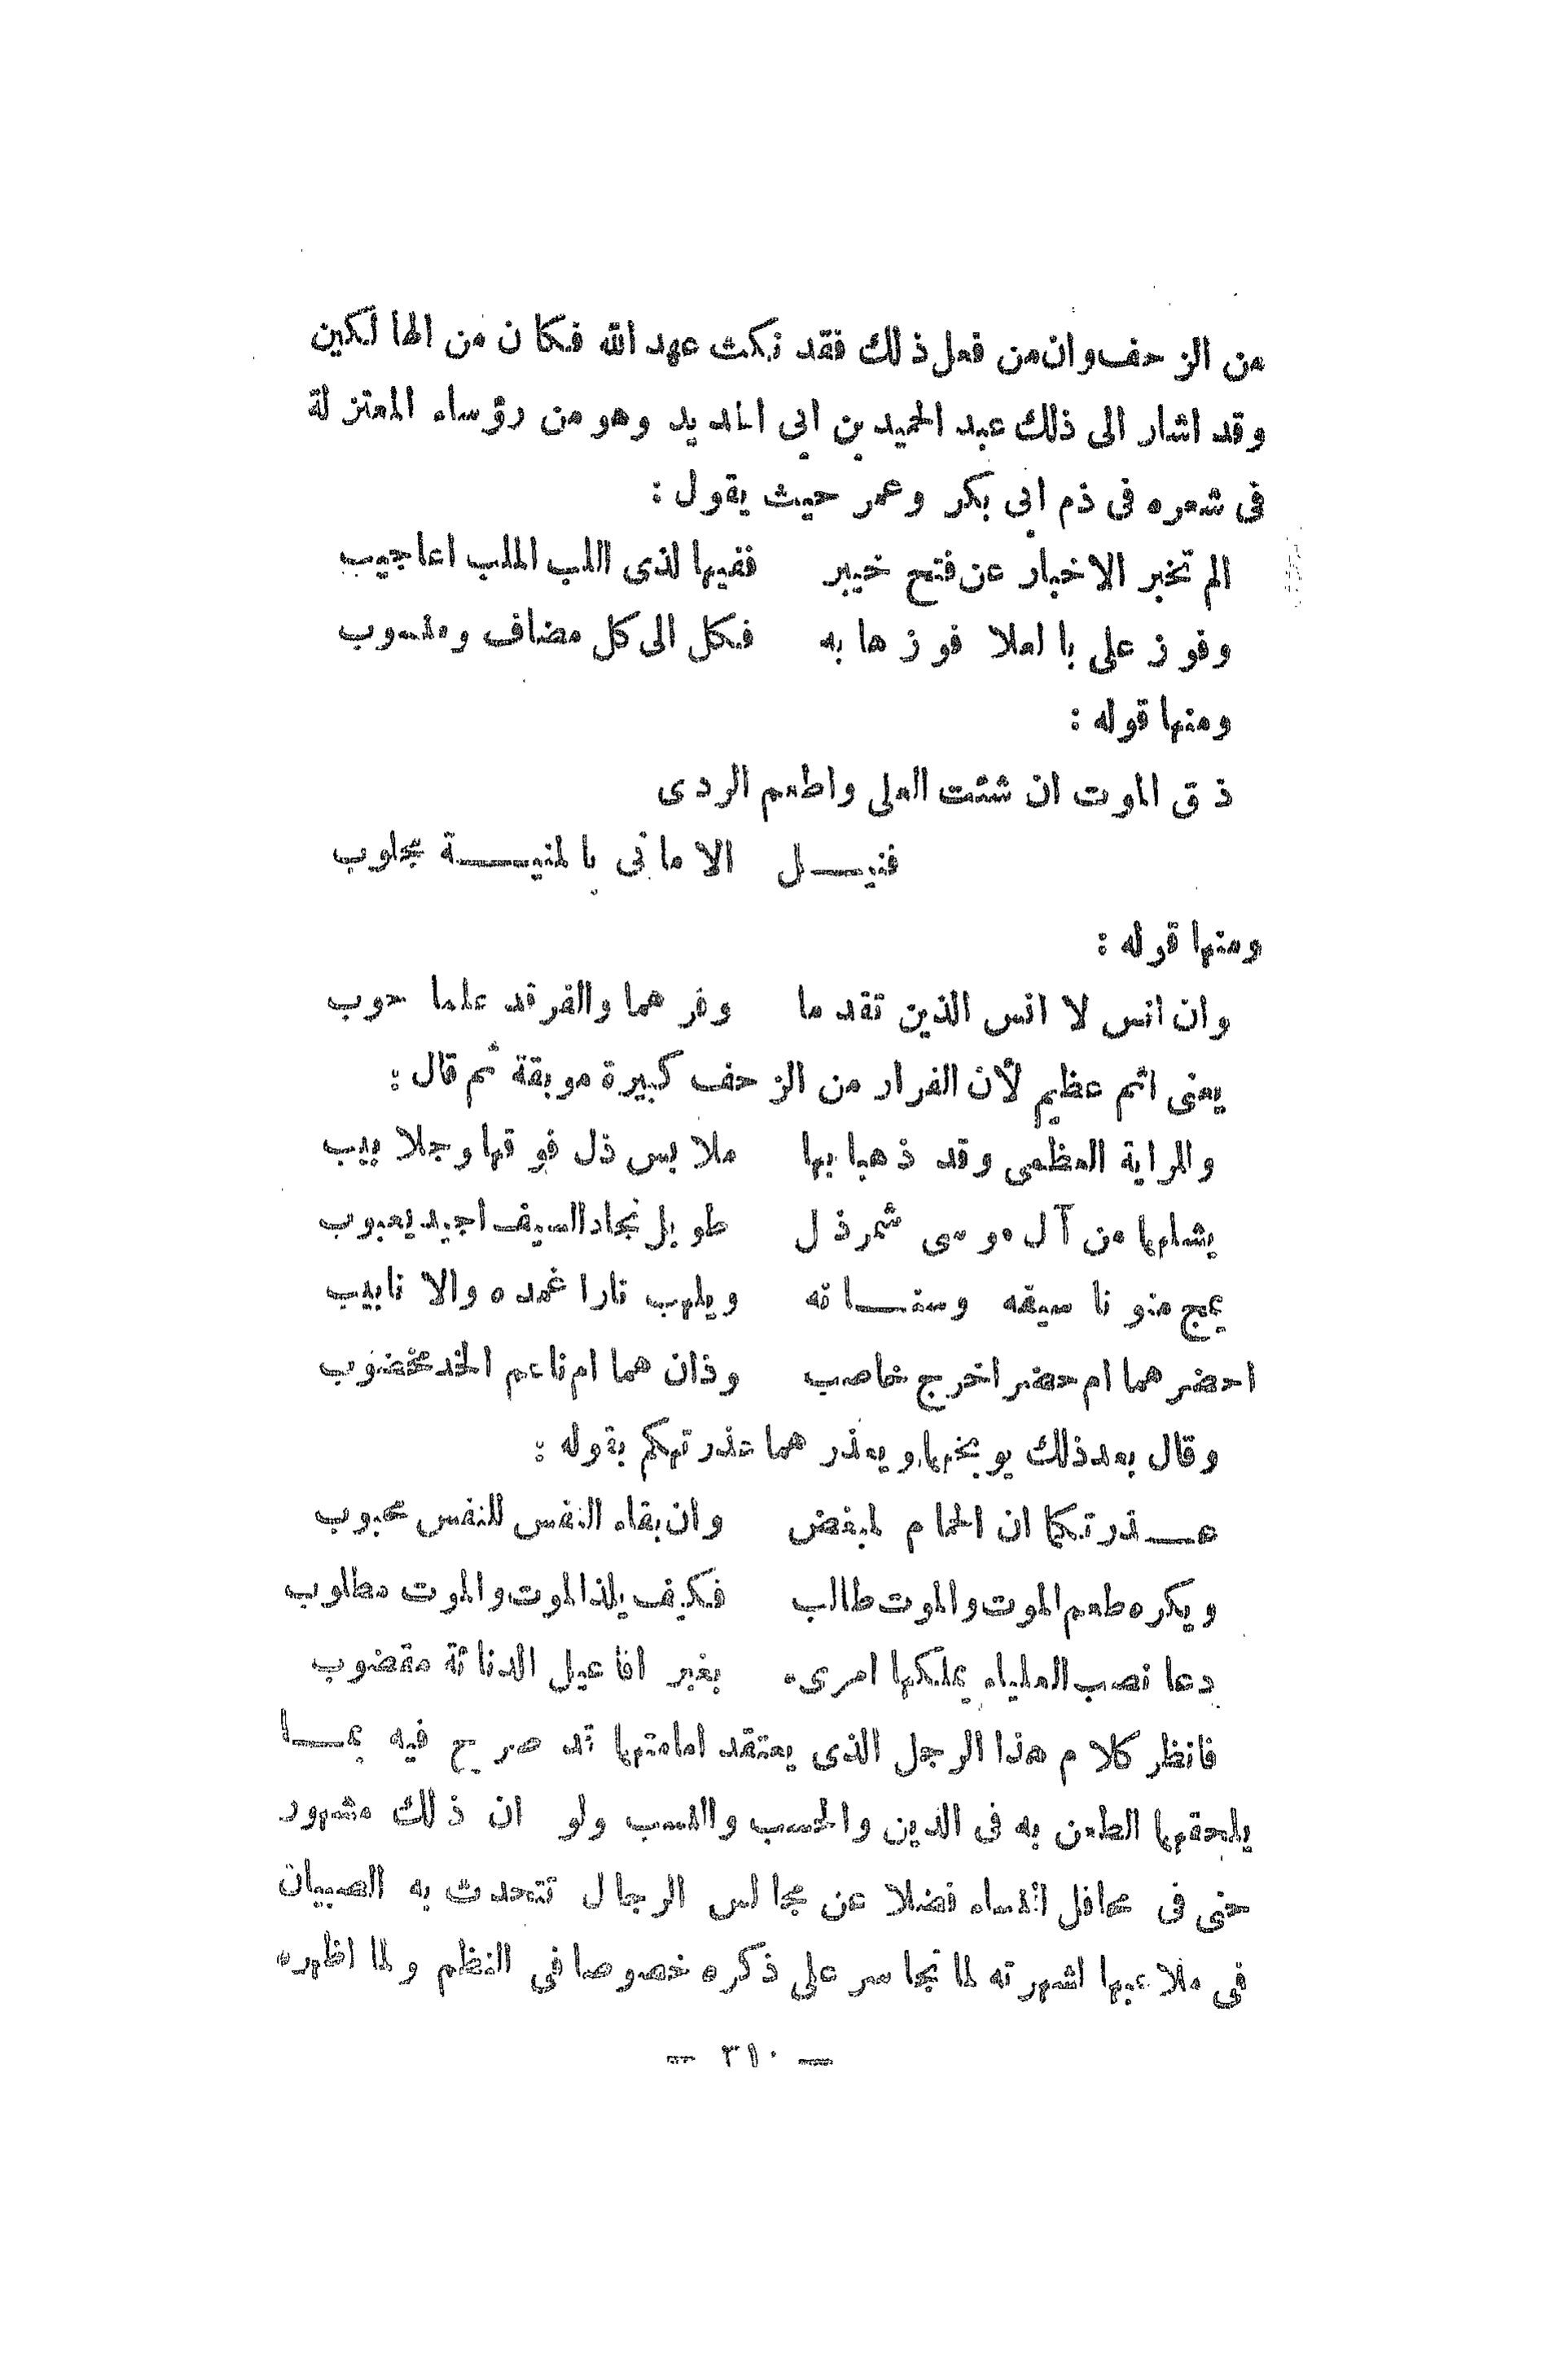 من الزحف وان من فعل ذلك فقد نكث عهد الله فكان من الهالكين
وقد اشار الى ذلك عبد الحميد بن ابي الحديد وهو من رؤساء المعتزلة
فى شعره فى ذم ابي بكر وعمر حيث يقول :
الم تخبر الاخبار عن فتح خيبر ففيها لذى اللب الملب اعاجيب
وفوز على بالعلا فوزها به فكل الى كل مضاف ومنسوب
ومنها قوله :
ذق الموت ان شئت العلى واطعم الردى
فنيـــل الامانى بالمنيـــة مجلوب
ومنها قوله :
وان انس لا انس الذين تقدما وفرهما والفر قد علما حوب
يعنى اثم عظيم لأن الفرار من الزحف كبيرة موبقة ثم قال :
وللراية العظمى وقد ذهبا بها ملابس ذل فوقها وجلابيب
يشلهما من آل موسى شمرذل طويل نجاد السيف اجيد يعبوب
يمج منونا سيفه وسنـــانه ويلهب نارا غمده والانابيب
احضرهما ام حضر اخرج خاصب وذان هما ام ناعم الخد مخضوب
وقال بعد ذلك يوبخهما ويعذرهما عذر تهكم بقوله :
عـــذرتكما ان الحمام لمبغض وان بقاء النفس للنفس محبوب
ويكره طعم الموت والموت طالب فكيف يلذ الموت والموت مطلوب
دعا نصب العلياء يملكها امرىء بغير افاعيل الدنائة مقضوب
فانظر كلام هذا الرجل الذى يعتقد امامتهما قد صرح فيه بمـــا
يلحقهما الطعن به فى الدين والحسب والنسب ولو ان ذلك مشهور
حتى فى محافل النساء فضلا عن مجالس الرجال تتحدث به الصبيان
فى ملاعبها لشهرته لما تجاسر على ذكره خصوصا فى النظم ولما اظهره
— ٣١٠ —